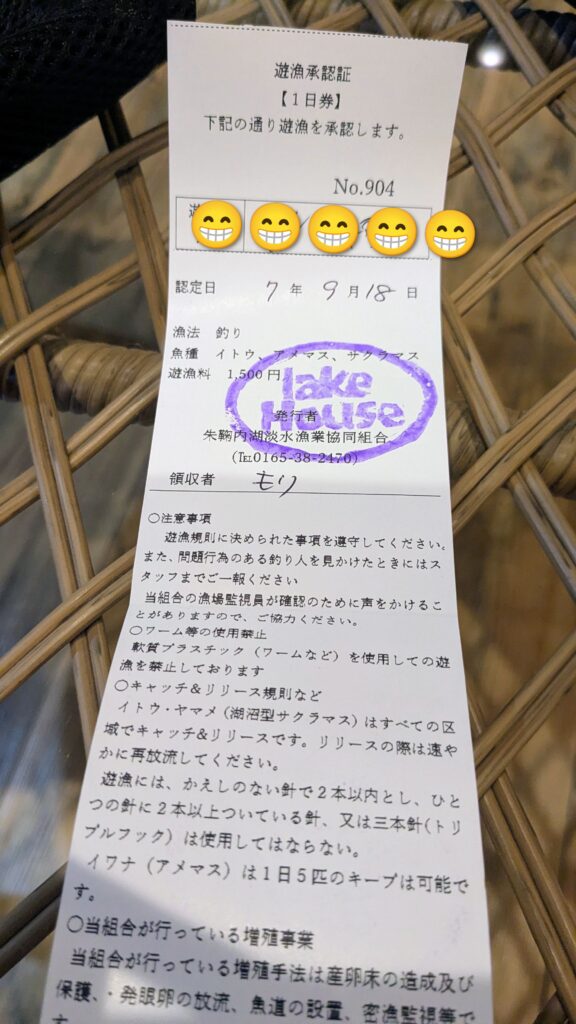 遊漁承認証
【1日券】
下記の通り遊漁を承認します。
No.904
認定日 7 年 9 月 18 日
漁法 釣り
魚種 イトウ、アメマス、サクラマス
遊漁料 1,500円
lake
House
発行者
朱鞠内湖淡水漁業協同組合
(℡0165-38-2470)
領収者 もり
○注意事項
遊漁規則に決められた事項を遵守してください。
また、問題行為のある釣り人を見かけたときにはス
タッフまでご一報ください
当組合の漁場監視員が確認のために声をかけるこ
とがありますので、ご協力ください。
○ワーム等の使用禁止
軟質プラスチック（ワームなど）を使用しての遊
漁を禁止しております
○キャッチ&リリース規則など
イトウ・ヤマメ（湖沼型サクラマス）はすべての区
域でキャッチ&リリースです。リリースの際は速や
かに再放流してください。
遊漁には、かえしのない針で２本以内とし、ひと
つの針に２本以上ついている針、又は三本針(トリ
プルフック）は使用してはならない。
イワナ（アメマス）は１日５匹のキープは可能で
す。
○当組合が行っている増殖事業
当組合が行っている増殖手法は産卵床の造成及び
保護、・発眼卵の放流、魚道の設置、密漁監視等で
す。